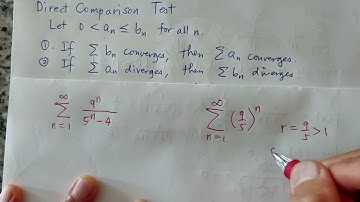 Direct Comparison Test
Let 0 < aₙ ≤ bₙ for all n.
① If ∑ bₙ converges, then ∑ aₙ converges.
② If ∑ aₙ diverges, then ∑ bₙ diverges.
∑_{n=1}^{∞} 9ⁿ/(5ⁿ-4)
∑_{n=1}^{∞} (9/5)ⁿ
r = 9/5 > 1